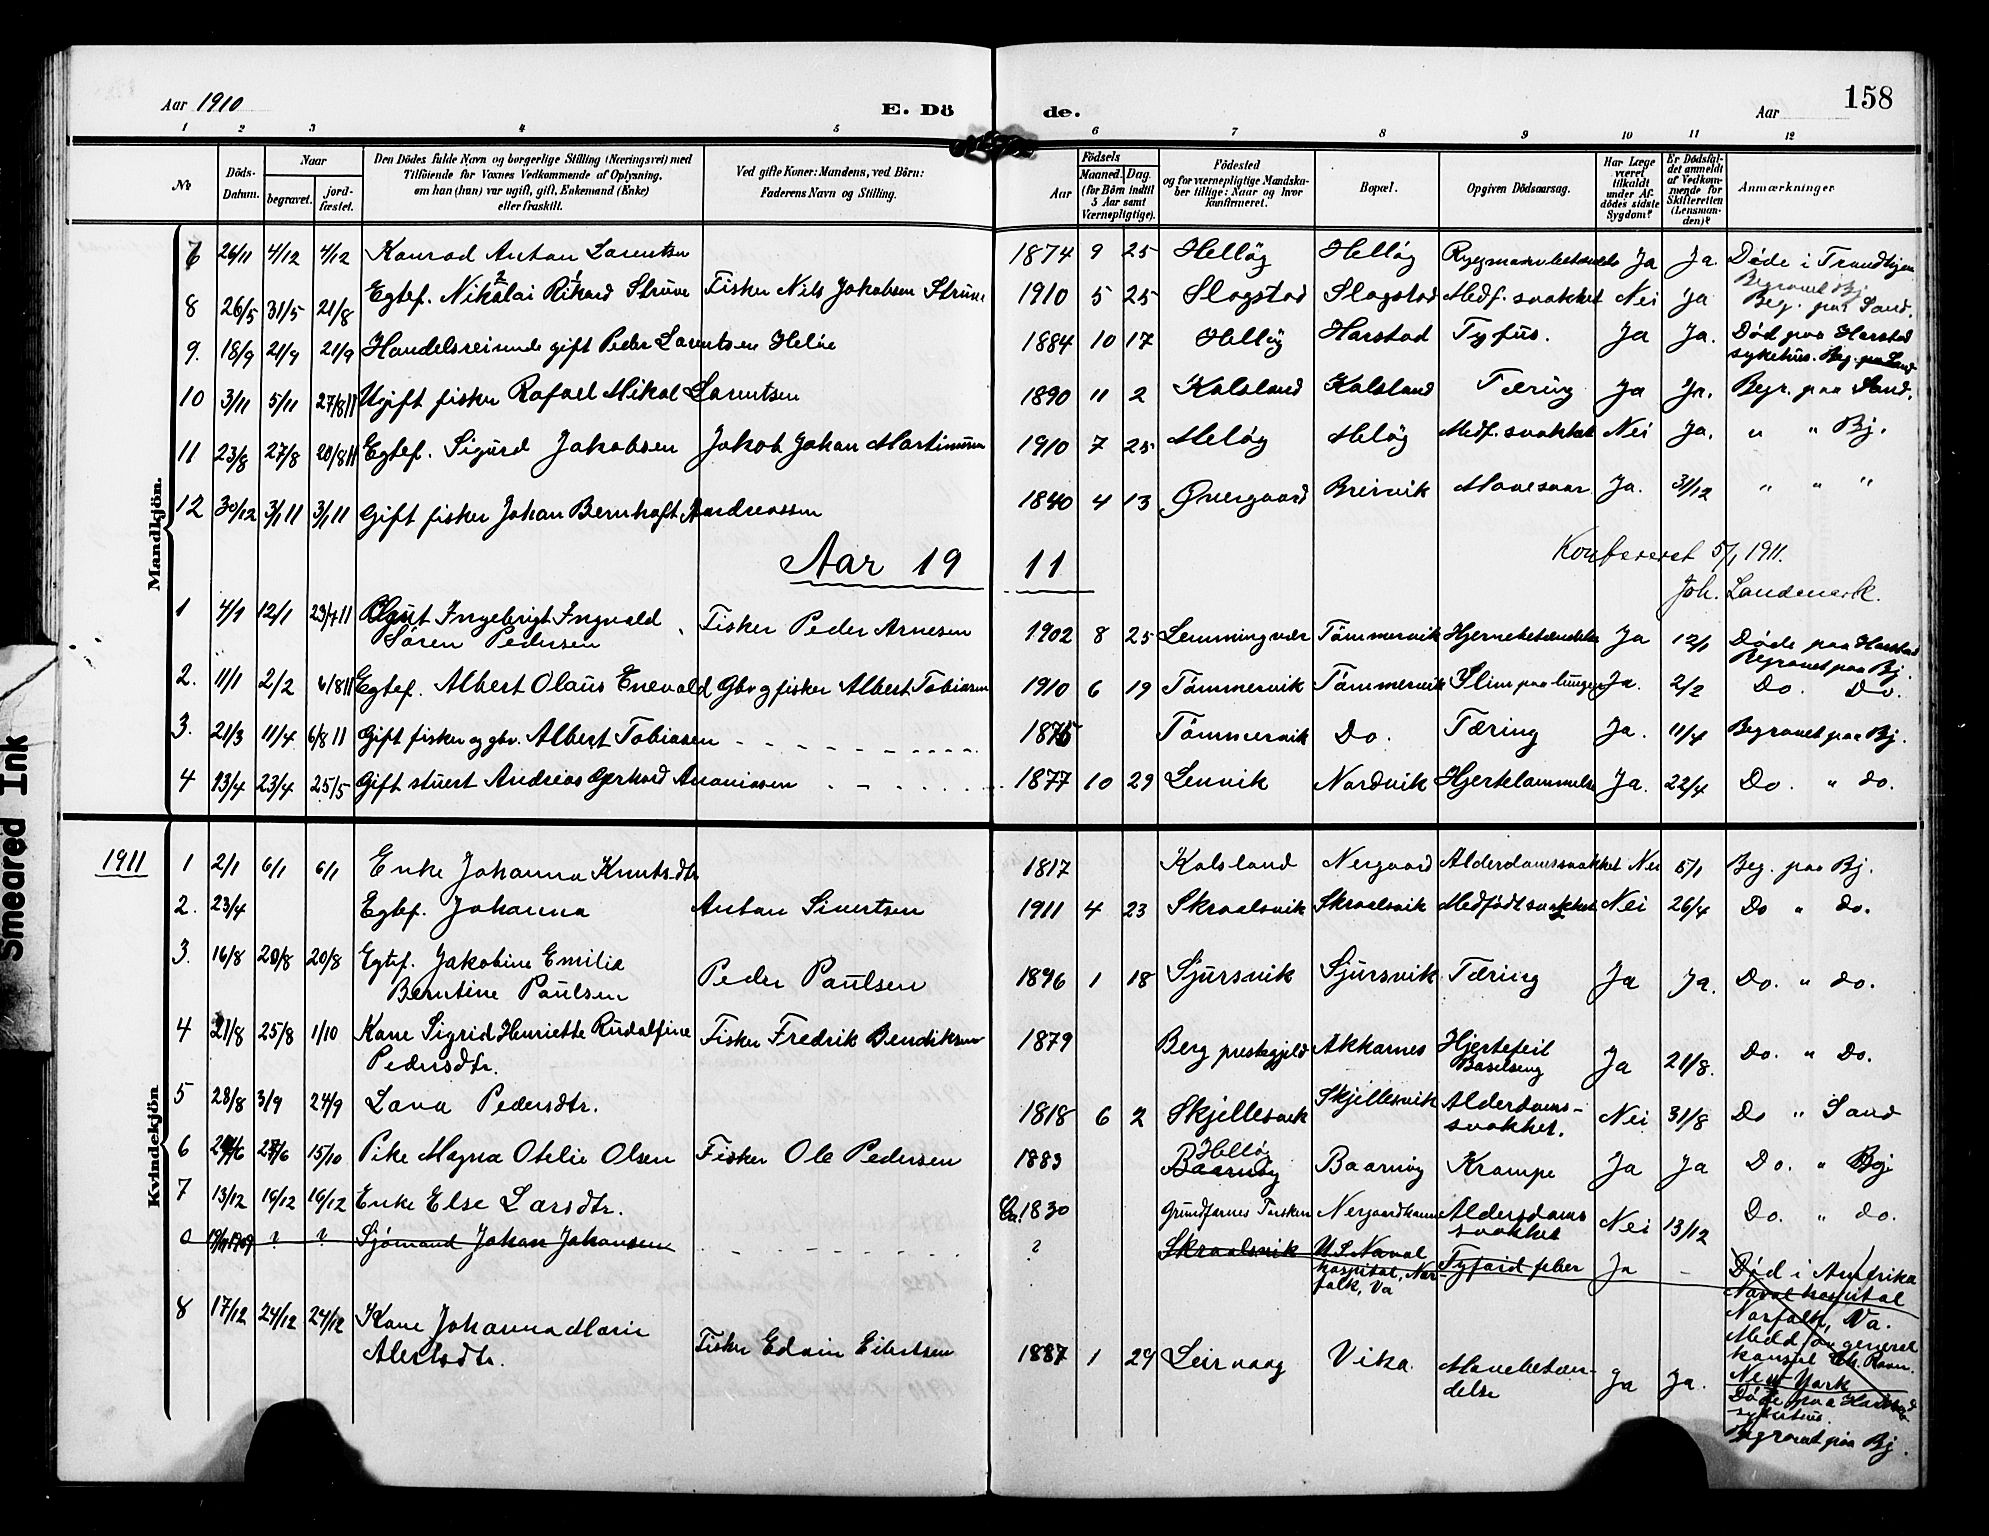 Aar 1910 E. Dö de. Aar 158
1 2 3 4 5 6 7 8 9 10 11 12
No
Döds-Datum.
Naar
begravet.
jord-fæstet.
Den Dödes fulde Navn og borgerlige Stilling (Næringsvei) med
Tilföiende for Voxnes Vedkommende af Oplysning,
om han (hun) var ugift, gift, Enkemand (Enke)
eller fraskilt.
Ved gifte Koner: Mandens, ved Börn:
Faderens Navn og Stilling.
Födsels
Aar
Maaned. Dag.
(for Börn indtil
5 Aar samt
Værnepligtige).
Födested
og for værnepligtige Mandska-
ber tillige: Naar og hvor
konfirmeret.
Bopæl.
Opgiven Dödsaarsag.
Har Læge
været
tilkaldt
under Af-
dödes sidste
Sygdom?
Er Dödsfal-
det anmeldt
af Vedkom-
mende for
Skifteretten
(Lensman-
den)?
Anmærkninger
Mandkjön.
26/11 4/12 4/12 Konrad Antan Larentsen 1874 9 25 Helløg Helløg Ja Ja. Døde i Trondhjem
Begravet Bj.
8 26/5 31/5 21/8 Egtef. Nikolai Rikard Strüve Fisker Nils Jakobsen Strüve 1910 5 25 Slogstad Slogstad Medf. svakket Nei Ja Beg. paa Sand.
9. 18/9 21/9 21/9 Handelsreisende gift Peder Larentsen Heløe 1884 10 17 Helløg Harstad Tyfus. Ja Ja. Død paa Harstad
sykehus. Beg. paa Sand
10 3/11 5/11 27/8 11 Ugift fisker Rafael Mikal Larentsen 1890 11 2 Kalsland Kalsland Tæring Ja Ja. Begr. paa Sand.
11 23/8 27/8 20/8 11 Egtef. Sigurd Jakobsen Jakob Johan Martinusen 1910 7 25 Meløg Meløg Medf. svakket Nei Ja. " " Bj.
12 30/12 3/1 11 3/1 11 Gift fisker Johan Bernhoft Andreassen 1840 4 13 Øvergaard Breivik Mavesaar Ja. 31/12 " " "
Aar 1911
Konfereret 5/1 1911.
Joh. Landmark.
1 4/1 12/1 Olaut Ingebrigt Ingvald
Søren Pedersen Fisker Peder Arnesen 1902 8 25 Lemmingvær Tømmervik Hjernebetændelse Ja 12/1 Døde paa Harstad
Begravet paa Bj.
2. 11/1 2/2 6/8 11 Egtef. Albert Olaüs Enevold Gbr og fisker Albert Tobiasen 1910 6 19 Tømmervik Tømmervik Slim paa lungen Ja. 2/2 Do. Do.
3. 21/3 11/4 6/8 11 Gift fisker og gbr. Albert Tobiasen 1875 Tømmervik Do. Tæring Ja. 11/4 Begravet paa Bj.
4 13/4 23/4 25/5 Gift stuert Andreas Gerhard Ananiassen 1877 10 29 Lenvik Nordvik Hjertelammelse Ja. 22/4 Do. " do.
1911
Kvindekjön
1 2/1 6/1 6/1 Enke Johanna Knutsdtr 1817 Kalsland Nergaard Alderdomssvakket Nei 5/1 Beg. paa Bj.
2. 23/4 Egtef. Johanna Antan Sivertsen 1911 4 23 Skraalsvik Skraalsvik Medfödt svakket Nei 26/4 Do " do.
3. 16/8 20/8 20/8 Egtef. Jakobine Emilie
Berntine Paulsen Peder Paulsen 1896 1 18 Sjursvik Sjursvik Tæring Ja Ja. Do. " do.
4 21/8 25/8 1/10 Kone Sigrid Henriette Rudalfine
Pedersdtr. Fisker Fredrik Bendiksen 1879 Berg prestegjeld Akkarnes Hjertefeil
Barselseng Ja 21/8. Do. " Do.
5 28/8 3/9 24/9 Lava Pedersdtr. 1818 6 2 Skjellesvik Skjellesvik Alderdoms-
svakket. Nei 31/8 Do " Sand
6 27/6 15/10 Pike Magna Otelie Olsen Fisker Ole Pedersen 1883 Helløg
Baarnøy Baarnøy Krampe Ja Ja Do. " Bj
7 13/12 19/12 19/12 Enke Else Larsdtr. Ca. 1830 Grundfarnes Torsken Nergaardhamn Aldersdoms
svakket Nei 13/12 Do. " do.
0 ? ? Sjømand Johan Johansen ? Skraalsvik U.S. Naval
hospital, Nor-
folk, Va Tyfoid feber Ja - Død i Amerika
Naval hospital
Norfolk, Va.
Medd. fra general
konsul Ch. Ravn.
New-York
8 17/12 24/12 24/12 Kone Johanna Marie
Alertsdtr. Fisker Edvin Eilertsen 1887 1 29 Leirvaag Vika. Mavebetæn-
delse Ja Ja. Døde paa Harstad
sykehus.
Begravet paa Bj.
Smeared Ink